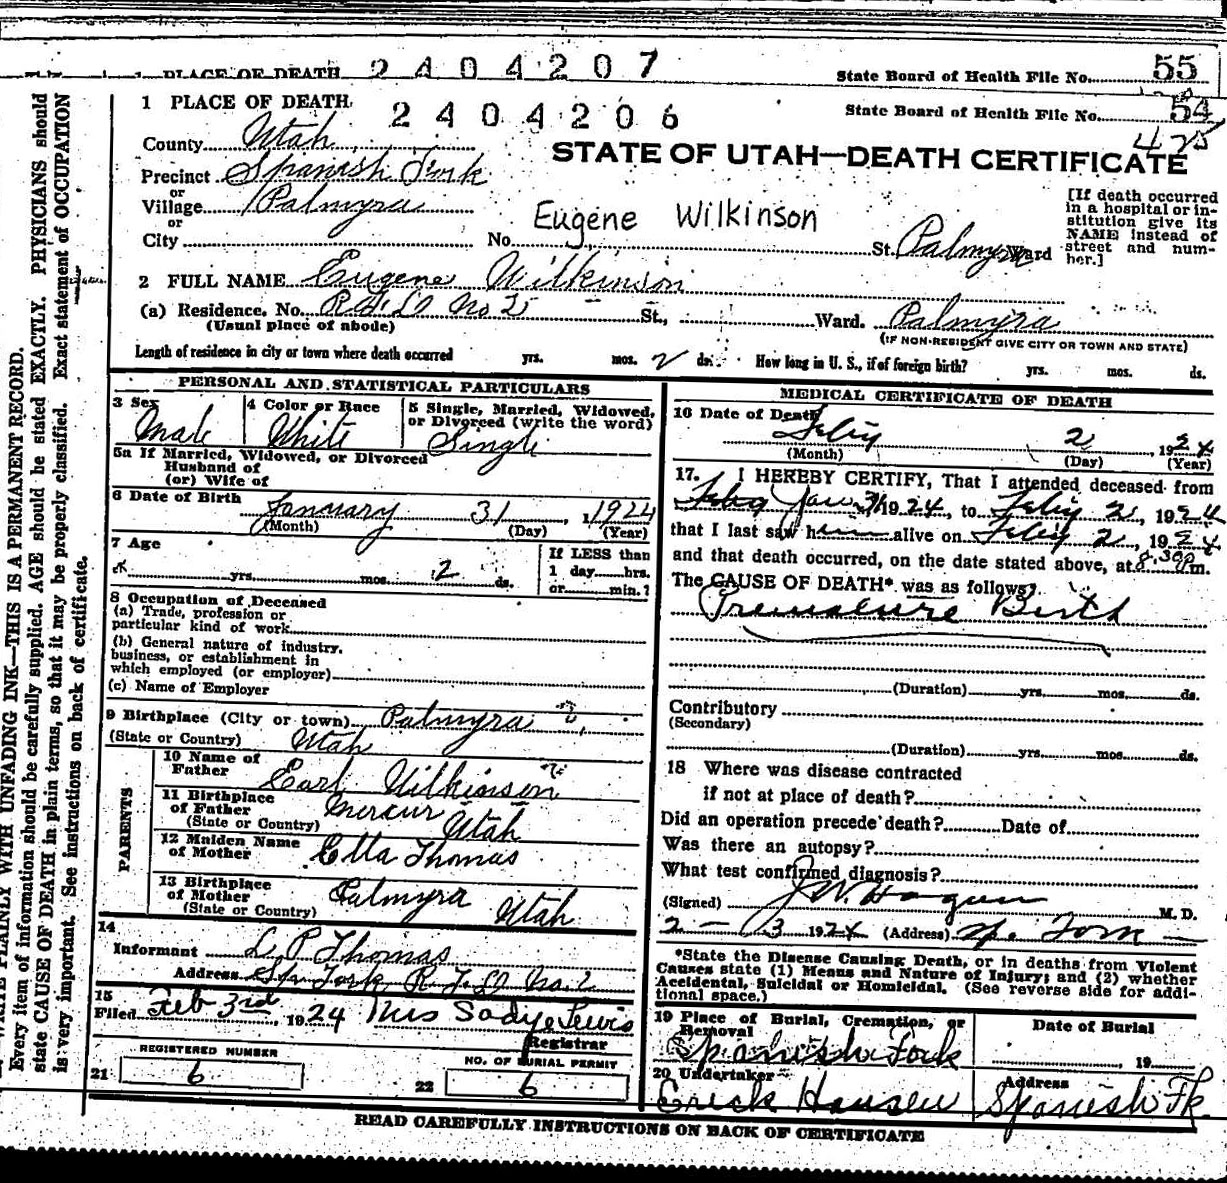 1 PLACE OF DEATH 2404207 State Board of Health File No. 55
1 PLACE OF DEATH 2404206 State Board of Health File No. 54
475
County Utah
STATE OF UTAH—DEATH CERTIFICATE
Precinct Spanish Fork
or
Village Palmyra
or
City
Eugene Wilkinson
No. St. Palmyra Ward
[If death occurred
in a hospital or in-
stitution give its
NAME instead of
street and num-
ber.]
2 FULL NAME Eugene Wilkinson
(a) Residence. No. R.F.D. No 2 St., Ward. Palmyra
(Usual place of abode) (IF NON-RESIDENT GIVE CITY OR TOWN AND STATE)
Length of residence in city or town where death occurred yrs. mos. 2 ds. How long in U. S., if of foreign birth? yrs. mos. ds.
PERSONAL AND STATISTICAL PARTICULARS
3 Sex
Male
4 Color or Race
White
5 Single, Married, Widowed,
or Divorced (write the word)
Single
5a If Married, Widowed, or Divorced
Husband of
(or) Wife of
6 Date of Birth
January 31, 1924
(Month) (Day) (Year)
7 Age
yrs. mos. 2 ds.
If LESS than
1 day......hrs.
or......min.?
8 Occupation of Deceased
(a) Trade, profession or
particular kind of work
(b) General nature of industry,
business, or establishment in
which employed (or employer)
(c) Name of Employer
9 Birthplace (City or town) Palmyra
(State or Country) Utah
PARENTS
10 Name of
Father Earl Wilkinson
11 Birthplace
of Father Mercur
(State or Country) Utah
12 Maiden Name
of Mother Etta Thomas
13 Birthplace
of Mother Palmyra
(State or Country) Utah
14
Informant L P Thomas
Address Spn Fork R.F.D. No. 2
15
Filed Feb 3rd, 1924 Mrs Sadye Lewis
Registrar
REGISTERED NUMBER
21 6
NO. OF BURIAL PERMIT
22 6
MEDICAL CERTIFICATE OF DEATH
16 Date of Death
Feby 2, 1924
(Month) (Day) (Year)
17. I HEREBY CERTIFY, That I attended deceased from
Jan. 31 1924, to Feby 2, 1924
that I last saw him alive on Feby 2, 1924
and that death occurred, on the date stated above, at 8:30 P m.
The CAUSE OF DEATH* was as follows:
Premature Birth
(Duration) yrs. mos. ds.
Contributory
(Secondary)
(Duration) yrs. mos. ds.
18 Where was disease contracted
if not at place of death?
Did an operation precede death? Date of
Was there an autopsy?
What test confirmed diagnosis?
(Signed) J W. Hagan M. D.
2 - 3 1924 (Address) Sp. Fork
*State the Disease Causing Death, or in deaths from Violent
Causes state (1) Means and Nature of Injury; and (2) whether
Accidental, Suicidal or Homicidal. (See reverse side for addi-
tional space.)
19 Place of Burial, Cremation, or
Removal
Spanish Fork
Date of Burial
19
20 Undertaker
Erick Hansen
Address
Spanish Fk.
READ CAREFULLY INSTRUCTIONS ON BACK OF CERTIFICATE
WRITE PLAINLY WITH UNFADING INK—THIS IS A PERMANENT RECORD.
Every item of information should be carefully supplied. AGE should be stated EXACTLY. PHYSICIANS should
state CAUSE OF DEATH in plain terms, so that it may be properly classified. Exact statement of OCCUPATION
is very important. See instructions on back of certificate.